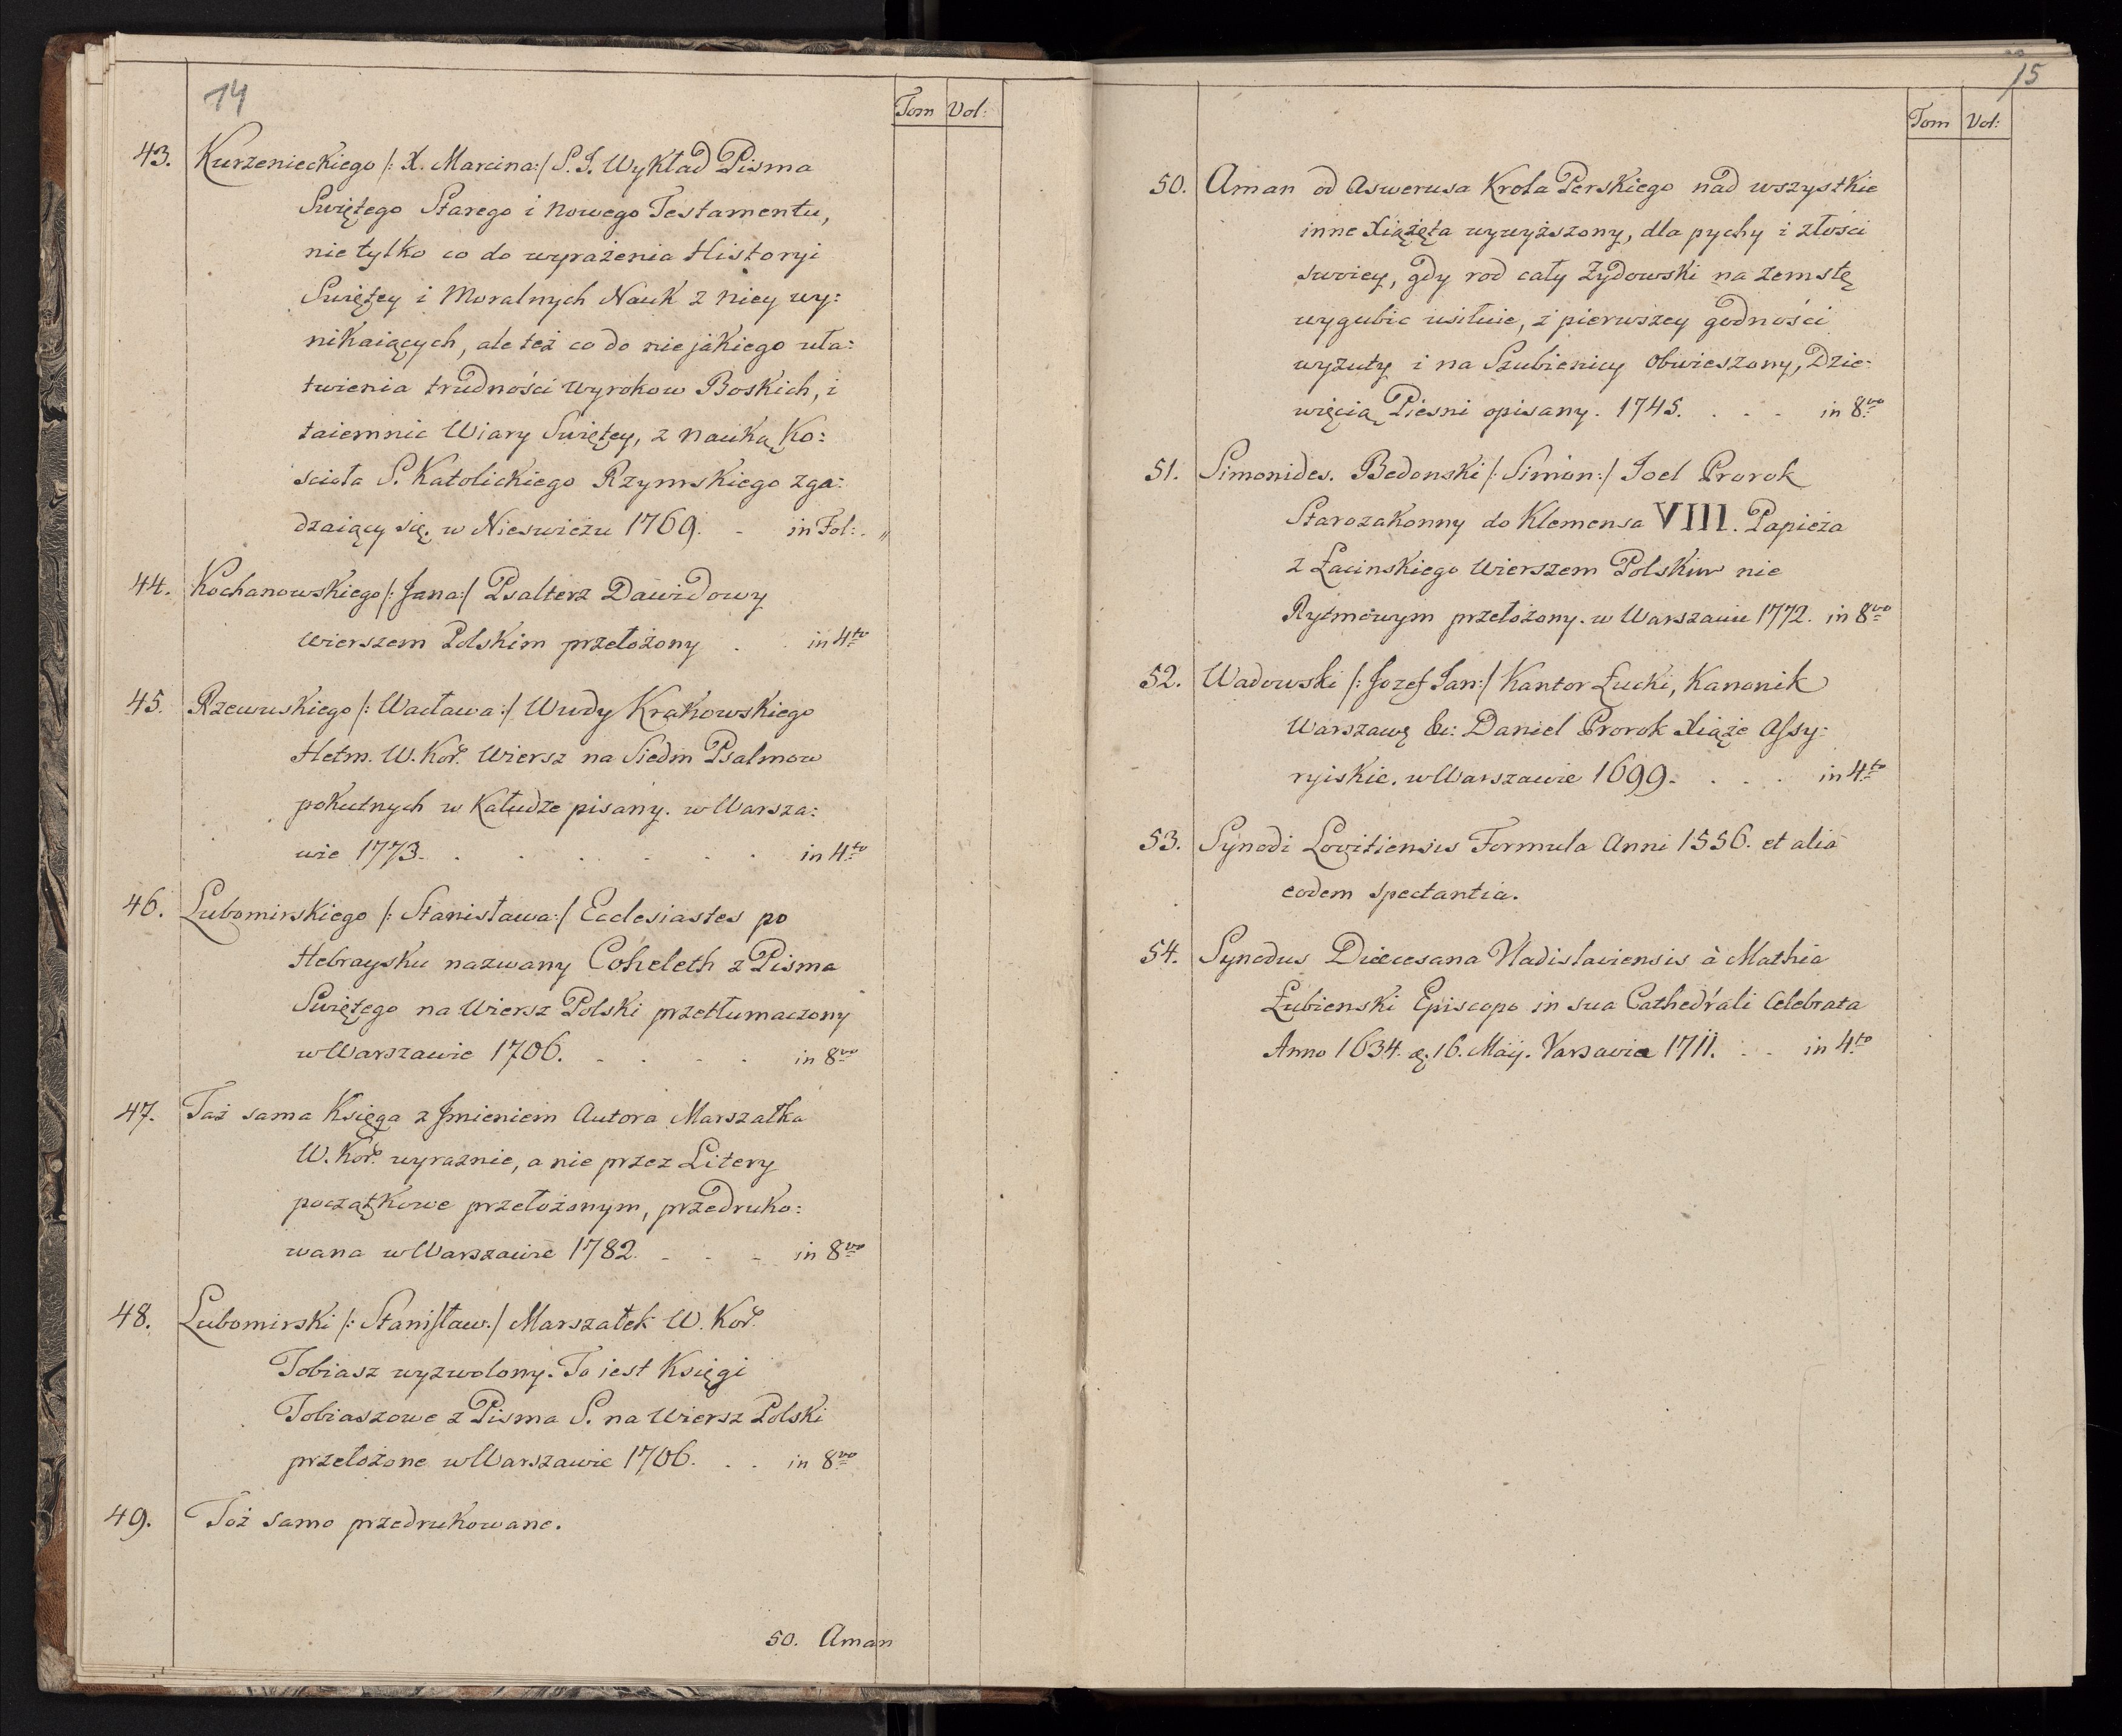 14
Tom Vol:
43. Kurzenieckiego /: X. Marcina:/ S. J. Wykład Pisma
Swiętego Starego i Nowego Testamentu,
nie tylko co do wyrażenia Historyi
Swiętey i Moralnych Nauk z niey wy:
nikaiących, ale też co do niejakiego uła:
twienia trudności Wyrokow Boskich, i
taiemnic Wiary Swiętey, z Nauką Ko:
scioła S. Katolickiego Rzymskiego zga:
dzaiący się. w Nieswieżu 1769. - in Fol: - "
44. Kochanowskiego /: Jana:/ Psalterz Dawidowy
Wierszem Polskim przełożony . . in 4to
45. Rzewuskiego /: Wacława:/ Wwdy Krakowskiego
Hetm. W. Kor. Wiersz na Siedm Psalmow
pokutnych w Kałudze pisany. w Warsza:
wie 1773. . . . . . . . in 4to
46. Lubomirskiego /: Stanisława:/ Ecclesiastes po
Hebraysku nazwany Coheleth z Pisma
Swiętego na Wiersz Polski przetłumaczony
w Warszawie 1706. . . . . in 8vo
47. Taż sama Księga z Jmieniem Autora Marszałka
W. Kor. wyraznie, a nie przez Litery
początkowe przełożonym, przedruko:
wana w Warszawie 1782. - - - in 8vo
48. Lubomirski /: Stanisław:/ Marszałek W. Kor.
Tobiasz wyzwolony. To iest Księgi
Tobiaszowe z Pisma S. na Wiersz Polski
przełożone w Warszawie 1706. . . in 8vo
49. Toż samo przedrukowane.
50. Aman
15
Tom Vol:
50. Aman od Aswerusa Krola Perskiego nad wszystkie
inne Xiążęta wywyższony, dla pychy i złości
swoiey, gdy rod cały Zydowski na zemstę
wygubic usiłuie, z pierwszey godności
wyzuty i na Szubienicy obwieszony, Dzie:
więcią Piesni opisany. 1745. . . . in 8vo
51. Simonides. Bedonski /: Simon:/ Joel Prorok
Starozakonny do Klemensa VIII. Papieża
z Łacinskiego Wierszem Polskim nie
Rytmowym przełożony. w Warszawie 1772. in 8vo
52. Wadowski /: Jozef Jan:/ Kantor Łucki, Kanonik
Daniel Prorok Xiąże Assy:
ryiskie. w Warszawie 1699. . . . in 4to
53. Synodi Lovitiensis Formula Anni 1556. et alia
eodem spectantia.
54. Synodus Diœcesana Vladislaviensis à Mathia
Łubienski Episcopo in sua Cathedrali Celebrata
Anno 1634. 16. Maij. Varsaviæ 1711. . . in 4to